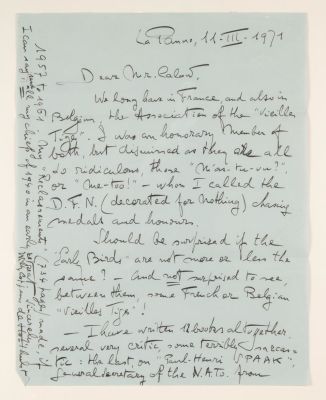 La Panne, 11-III-1971
Dear Mr. Calow.
We long have in France, and also in
Belgium, the Association of the "Vieilles
Tiges". I was an honorary member of
both, but dismissed as they are all
so ridiculous, those "M'as-tu-vu?"
or "Me-too!" - whom I called the
D.F.N. (decorated for Nothing) chasing
medals and honours.
Should be surprised if the
"Early Birds" are not more or less the
same? - and not surprised to see,
between them, some French or Belgian
"Vieilles Tiges"!
- I have written 12 books altogether.
several very critic, some terribly sarcas-
tic: the last on "Paul-Henri SPAAK",
General secretary of the N.A.T.O. from
1957 to 1961. My "Reclassements" (234 pages) made, if
I can say: my chief of 1940 in an early